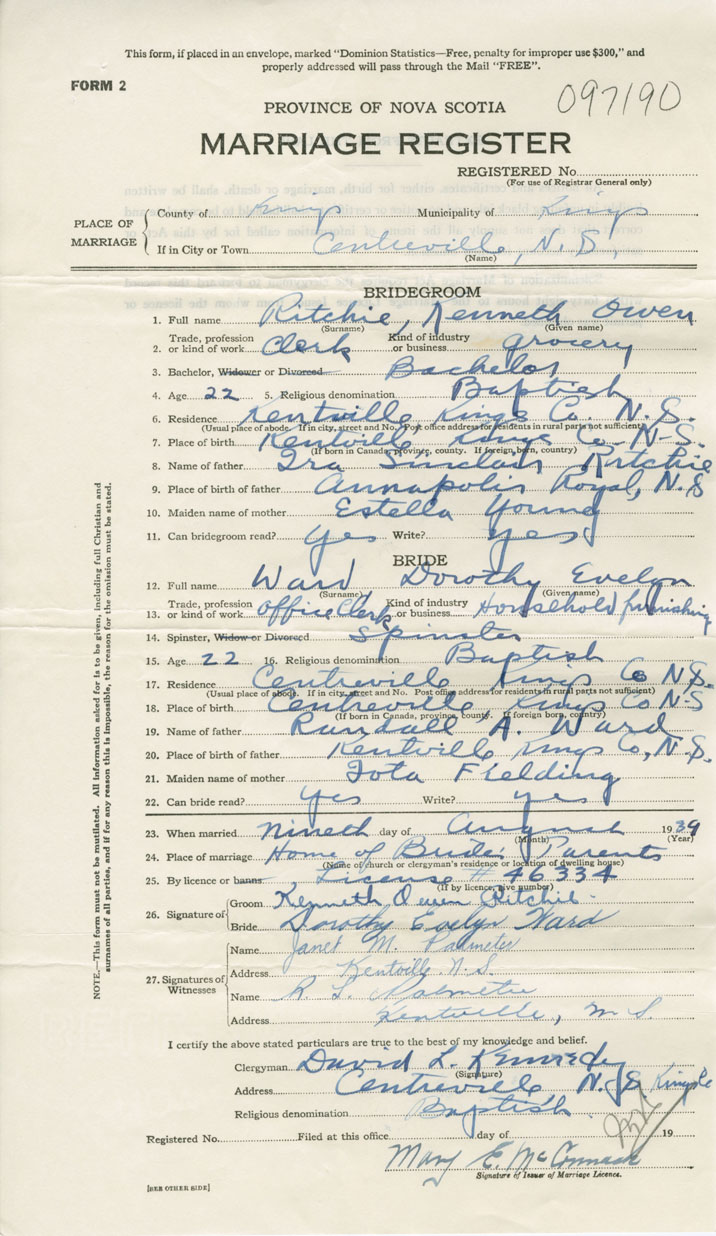 This form, if placed in an envelope, marked "Dominion Statistics—Free, penalty for improper use $300," and
properly addressed will pass through the Mail "FREE".
FORM 2
097190
PROVINCE OF NOVA SCOTIA
MARRIAGE REGISTER
REGISTERED No.
(For use of Registrar General only)
PLACE OF MARRIAGE
County of Kings Municipality of Kings
If in City or Town Centreville, N.S.
(Name)
BRIDEGROOM
1. Full name Ritchie, Kenneth Owen
(Surname) (Given name)
2. Trade, profession or kind of work Clerk Kind of industry or business grocery
3. Bachelor, Widower or Divorced Bachelor
4. Age 22 5. Religious denomination Baptist
6. Residence Kentville Kings Co. N.S.
(Usual place of abode. If in city, street and No. Post office address for residents in rural parts not sufficient)
7. Place of birth Kentville Kings Co. N.S.
(If born in Canada, province, county. If foreign born, country)
8. Name of father Ira Sinclair Ritchie
9. Place of birth of father Annapolis Royal, N.S
10. Maiden name of mother Estella Young
11. Can bridegroom read? yes Write? yes
BRIDE
12. Full name Ward Dorothy Evelyn
(Surname) (Given name)
13. Trade, profession or kind of work office Clerk Kind of industry or business Household furnishing
14. Spinster, Widow or Divorced Spinster
15. Age 22 16. Religious denomination Baptist
17. Residence Centreville Kings Co N.S.
(Usual place of abode. If in city, street and No. Post office address for residents in rural parts not sufficient)
18. Place of birth Centreville Kings Co N.S
(If born in Canada, province, county. If foreign born, country)
19. Name of father Randall A. Ward
20. Place of birth of father Kentville Kings Co, N.S.
21. Maiden name of mother Iota Fielding
22. Can bride read? yes Write? yes
23. When married Nineth day of August 1939
(Month) (Year)
24. Place of marriage Home of Bride's Parents
(Name of church or clergyman's residence or location of dwelling house)
25. By licence or banns License # 46334
(If by licence, give number)
26. Signature of
Groom Kenneth Owen Ritchie
Bride Dorothy Evelyn Ward
27. Signatures of Witnesses
Name Janet M. Palmeter
Address Kentville N.S.
Name R. L. Palmeter
Address Kentville, N.S.
I certify the above stated particulars are true to the best of my knowledge and belief.
Clergyman David L. Kennedy
(Signature)
Address Centreville N.S Kings Co
Religious denomination Baptist
Registered No. Filed at this office day of 19
Mary E. McCormack
Signature of Issuer of Marriage Licence.
[SEE OTHER SIDE]
NOTE.—This form must not be mutilated. All information asked for is to be given, including full Christian and
surnames of all parties, and if for any reason this is impossible, the reason for the omission must be stated.